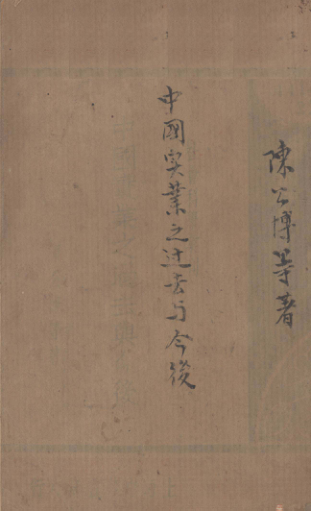 陳公博等著
中國实業之过去与今後